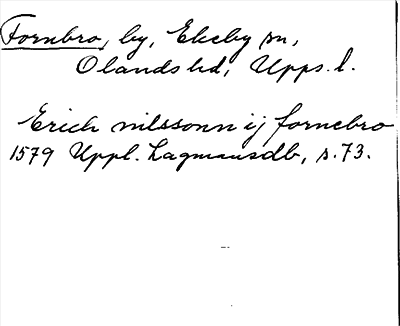 Fornbro, by, Ekeby sn,
Olands hd, Upps. l.
Erich nilssonn ij fornebro
1579 Uppl. Lagmansdb, s. 73.